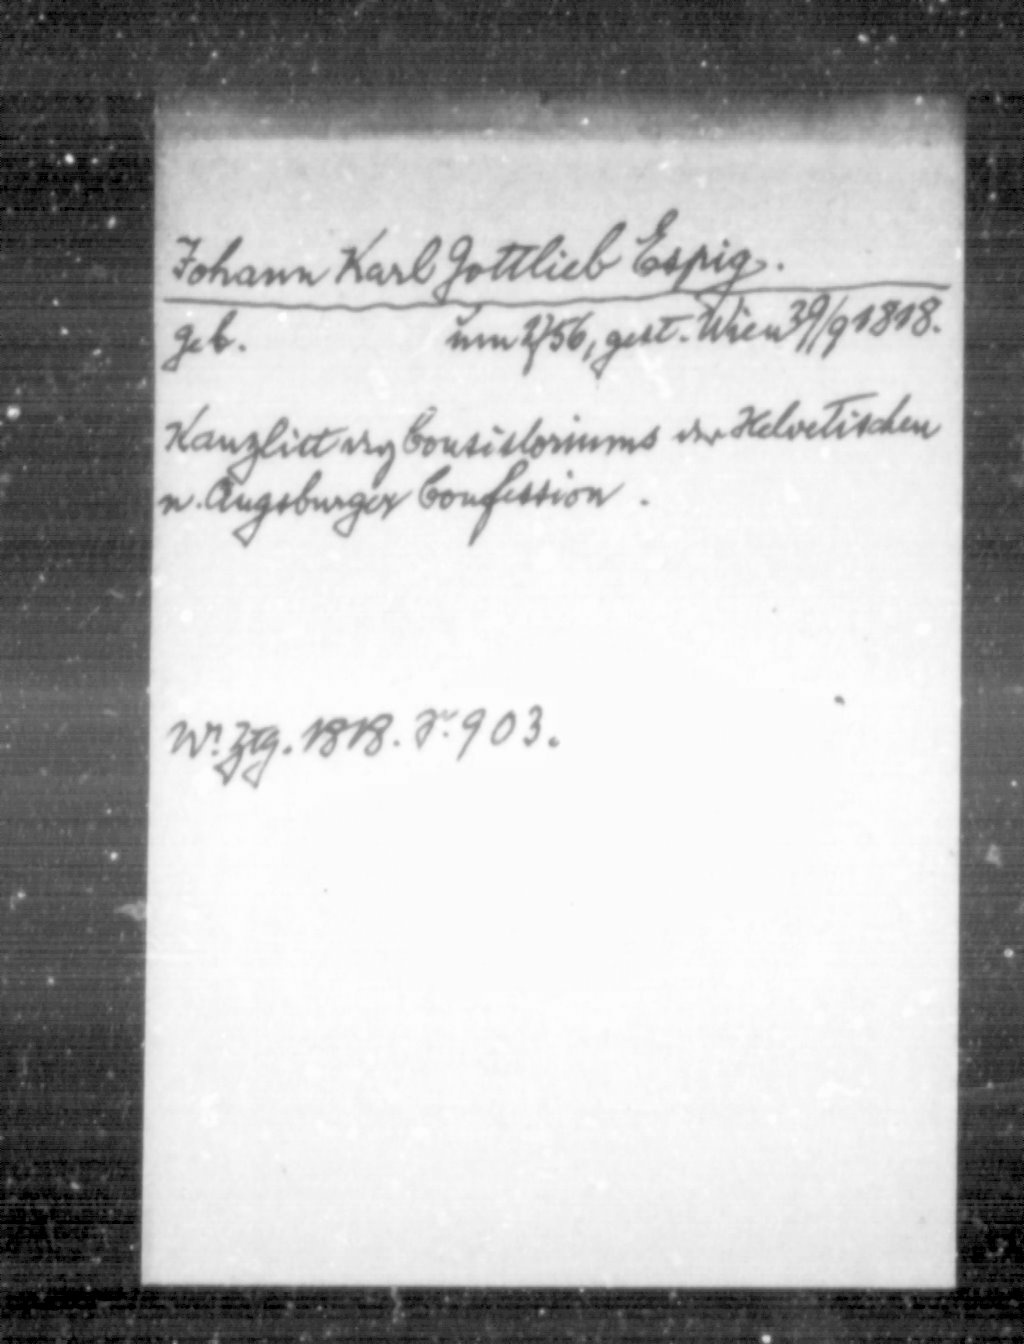 Johann Karl Gottlieb Espig.
geb. um 1756, gest. Wien 30/9 1818.
Kanzlist des Consistoriums der Helvetischen
u. Augsburger Confession.
Wr. Ztg. 1818. S. 903.